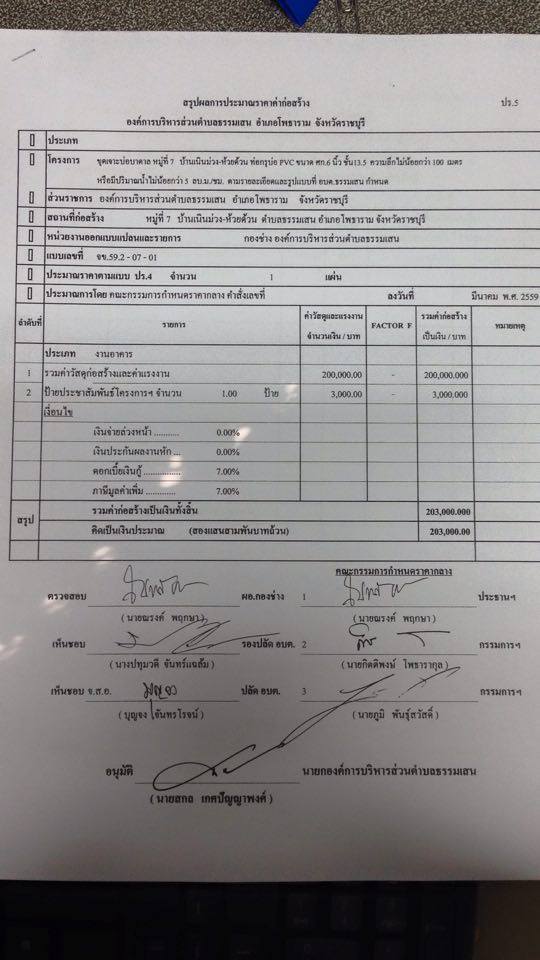 สรุปผลการประมาณราคาค่าก่อสร้าง
ปร.5
องค์การบริหารส่วนตำบลธรรมเสน อำเภอโพธาราม จังหวัดราชบุรี
ประเภท
โครงการ ขุดเจาะบ่อบาดาล หมู่ที่ 7 บ้านเนินม่วง-ห้วยด้วน ท่อกรุบ่อ PVC ขนาด ศก.6 นิ้ว ชั้น13.5 ความลึกไม่น้อยกว่า 100 เมตร
หรือมีปริมาณน้ำไม่น้อยกว่า 5 ลบ.ม./ชม. ตามรายละเอียดและรูปแบบที่ อบต.ธรรมเสน กำหนด
ส่วนราชการ องค์การบริหารส่วนตำบลธรรมเสน อำเภอโพธาราม จังหวัดราชบุรี
สถานที่ก่อสร้าง หมู่ที่ 7 บ้านเนินม่วง-ห้วยด้วน ตำบลธรรมเสน อำเภอโพธาราม จังหวัดราชบุรี
หน่วยงานออกแบบแปลนและรายการ กองช่าง องค์การบริหารส่วนตำบลธรรมเสน
แบบเลขที่ จข.59.2 - 07 - 01
ประมาณราคาตามแบบ ปร.4 จำนวน 1 แผ่น
ประมาณการโดย คณะกรรมการกำหนดราคากลาง คำสั่งเลขที่ ลงวันที่ มีนาคม พ.ศ. 2559
ลำดับที่ รายการ ค่าวัสดุและแรงงาน จำนวนเงิน / บาท FACTOR F รวมค่าก่อสร้าง เป็นเงิน / บาท หมายเหตุ
ประเภท งานอาคาร
1 รวมค่าวัสดุก่อสร้างและค่าแรงงาน 200,000.00 - 200,000.000
2 ป้ายประชาสัมพันธ์โครงการฯ จำนวน 1.00 ป้าย 3,000.00 - 3,000.000
เงื่อนไข
เงินจ่ายล่วงหน้า .......... 0.00%
เงินประกันผลงานหัก ... 0.00%
ดอกเบี้ยเงินกู้ ............... 7.00%
ภาษีมูลค่าเพิ่ม ............. 7.00%
สรุป รวมค่าก่อสร้างเป็นเงินทั้งสิ้น 203,000.000
คิดเป็นเงินประมาณ (สองแสนสามพันบาทถ้วน) 203,000.00
คณะกรรมการกำหนดราคากลาง
ตรวจสอบ ผอ.กองช่าง 1 ประธานฯ
( นายณรงค์ พฤกษา ) ( นายณรงค์ พฤกษา )
เห็นชอบ รองปลัด อบต. 2 กรรมการฯ
( นางปทุมวดี จันทร์เฉลัม ) ( นายกิตติพงษ์ โพธารากุล )
เห็นชอบ จ.ส.อ. ปลัด อบต. 3 กรรมการฯ
( บุญจง จันทรโรจน์ ) ( นายภูมิ พันธุ์สวัสดิ์ )
อนุมัติ นายกองค์การบริหารส่วนตำบลธรรมเสน
( นายสกล เกศปัญญาพงศ์ )